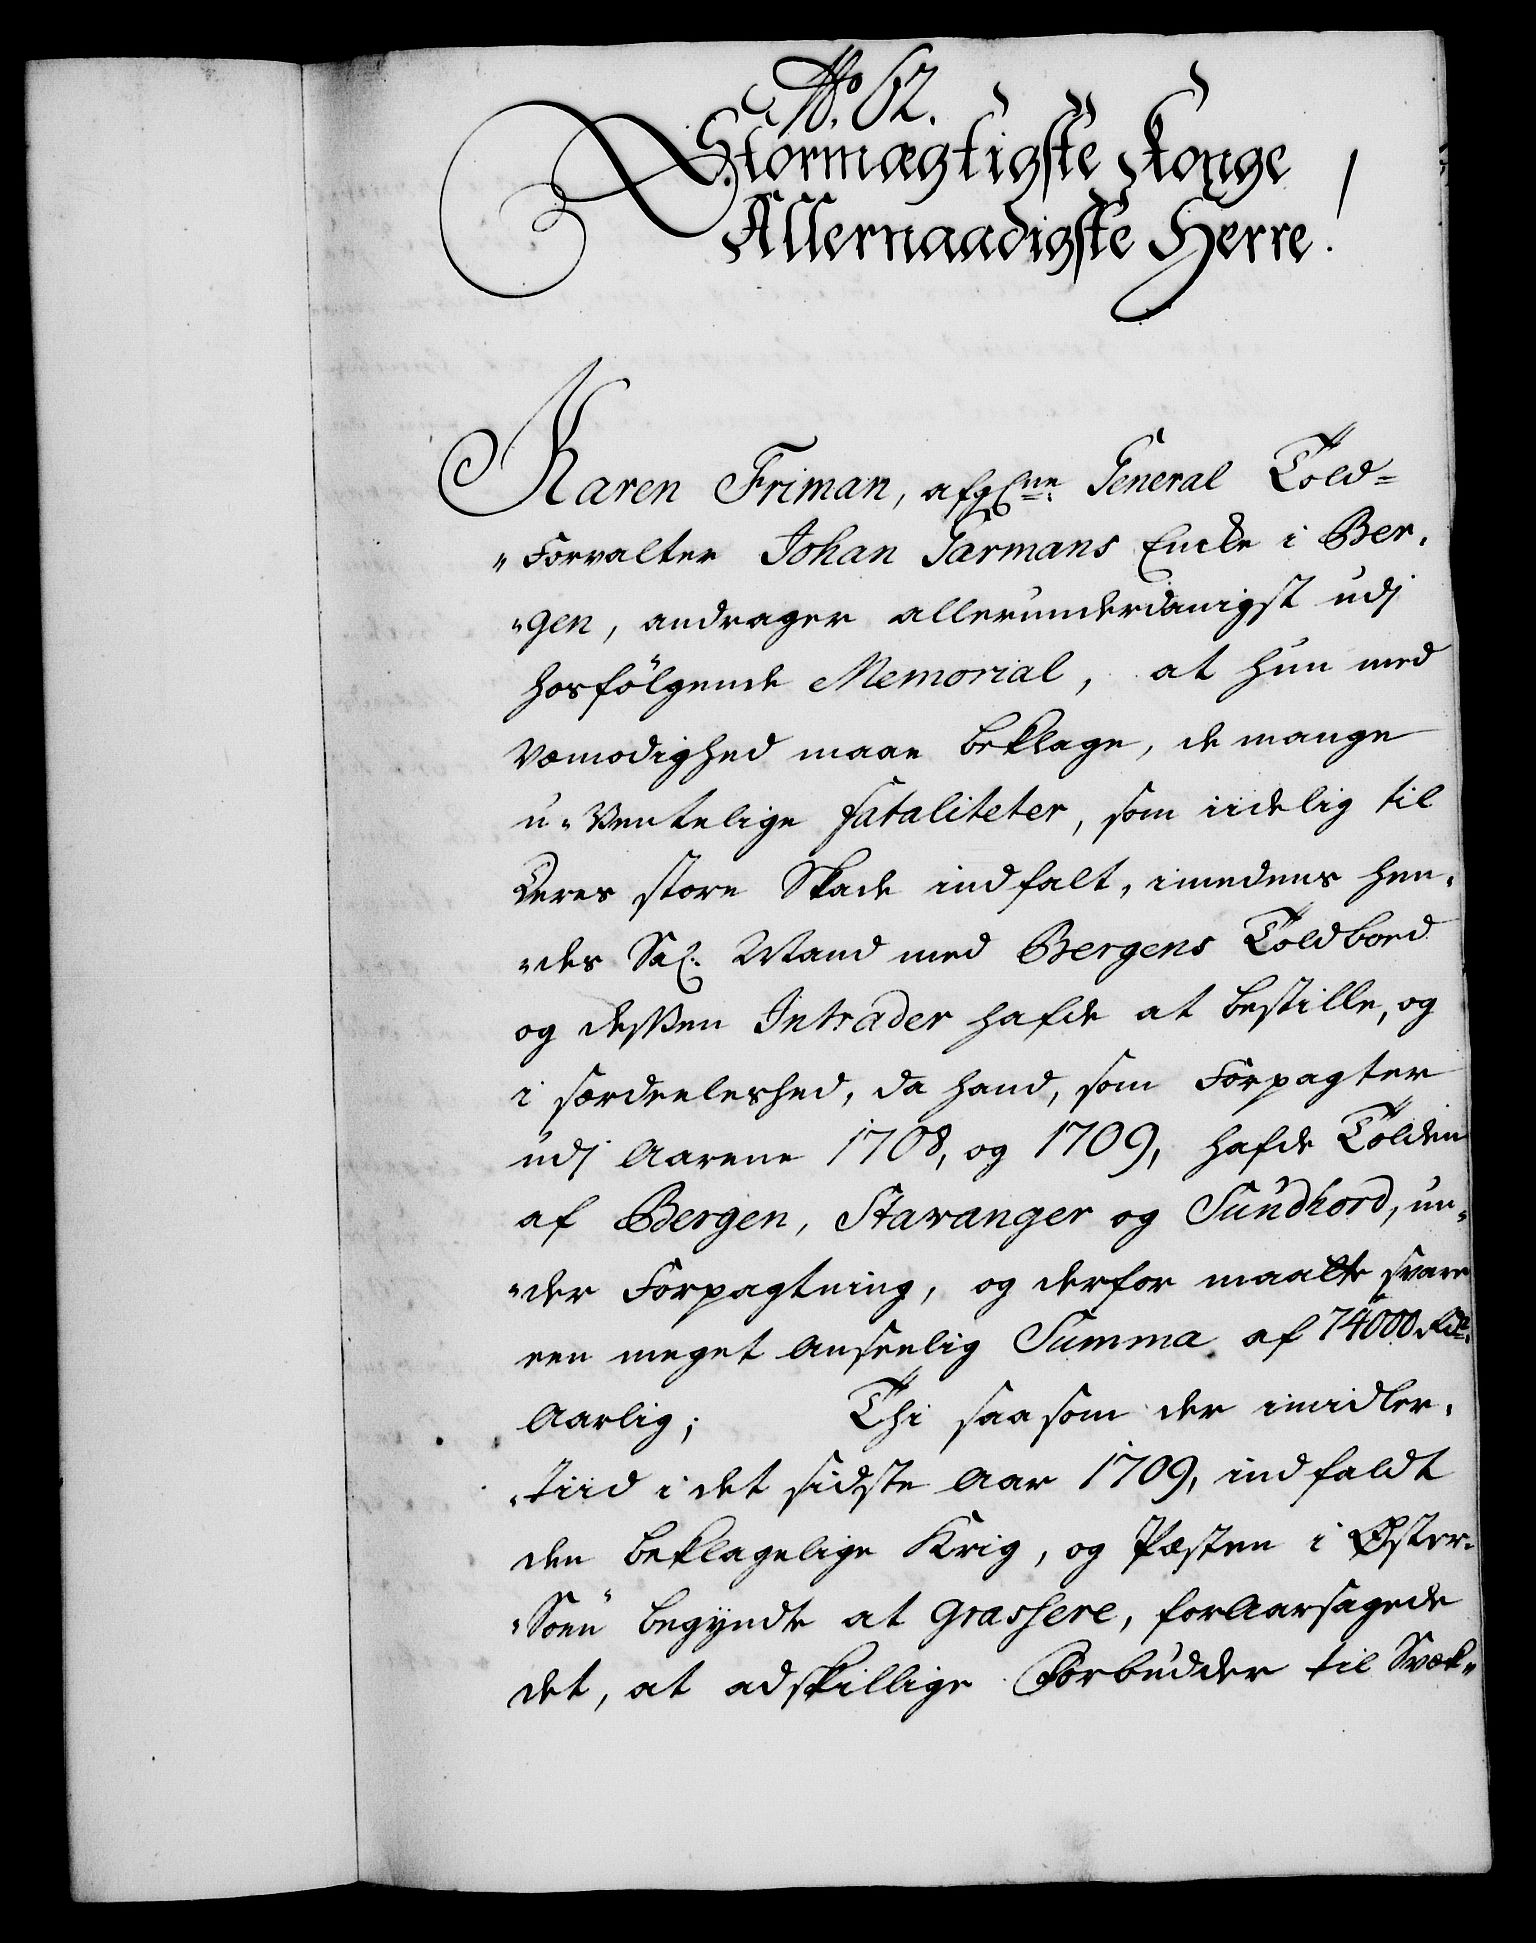 No. 62.
Stormægtigste Konge
Allernaadigste Herre!
Karen Friman, afgl:ne General Told=
"Forvalter Johan Garmans Encke i Ber,
"gen, andrager allerunderdanigst udj
hosfölgende Memorial, at hun med
Vemodighed maae beklage, de mange
u-Ventelige fataliteter, som iidelig til
Deres store Skade indfalt, imedens hen,
"des Sal: Mand med Bergens Toldboed
og desßen Intrader hafde at bestille, og
i særdeeleshed, da hand, som Forpagter
udj Aarene 1708, og 1709, hafde Tolden
af Bergen, Stavanger og Sundhord, un,
"der Forpagtning, og derfor maatte svare
een meget Anseelig Summa af 74000 Rd:
Aarlig; Thi saasom der imidler,
"tiid i det sidste Aar 1709, indfaldt
den beklagelige Krig, og Pesten i Øster,
"Söen begyndte at grassere, foraarsagede
det, at adskillige Forbudder til Svæk,